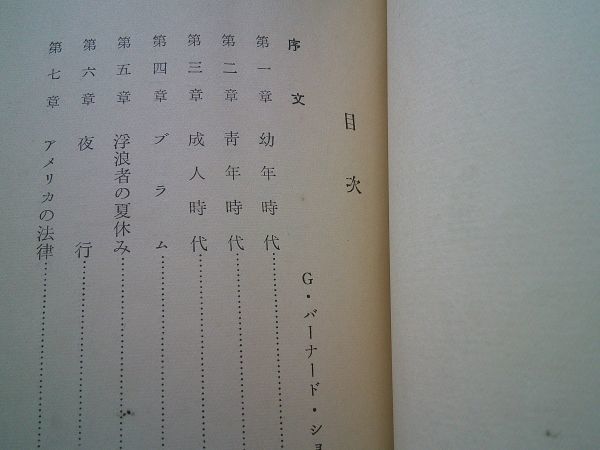 目次
序文 G・バーナード・ショ
第一章 幼年時代
第二章 靑年時代
第三章 成人時代
第四章 ブラム
第五章 浮浪者の夏休み
第六章 夜行
第七章 アメリカの法律